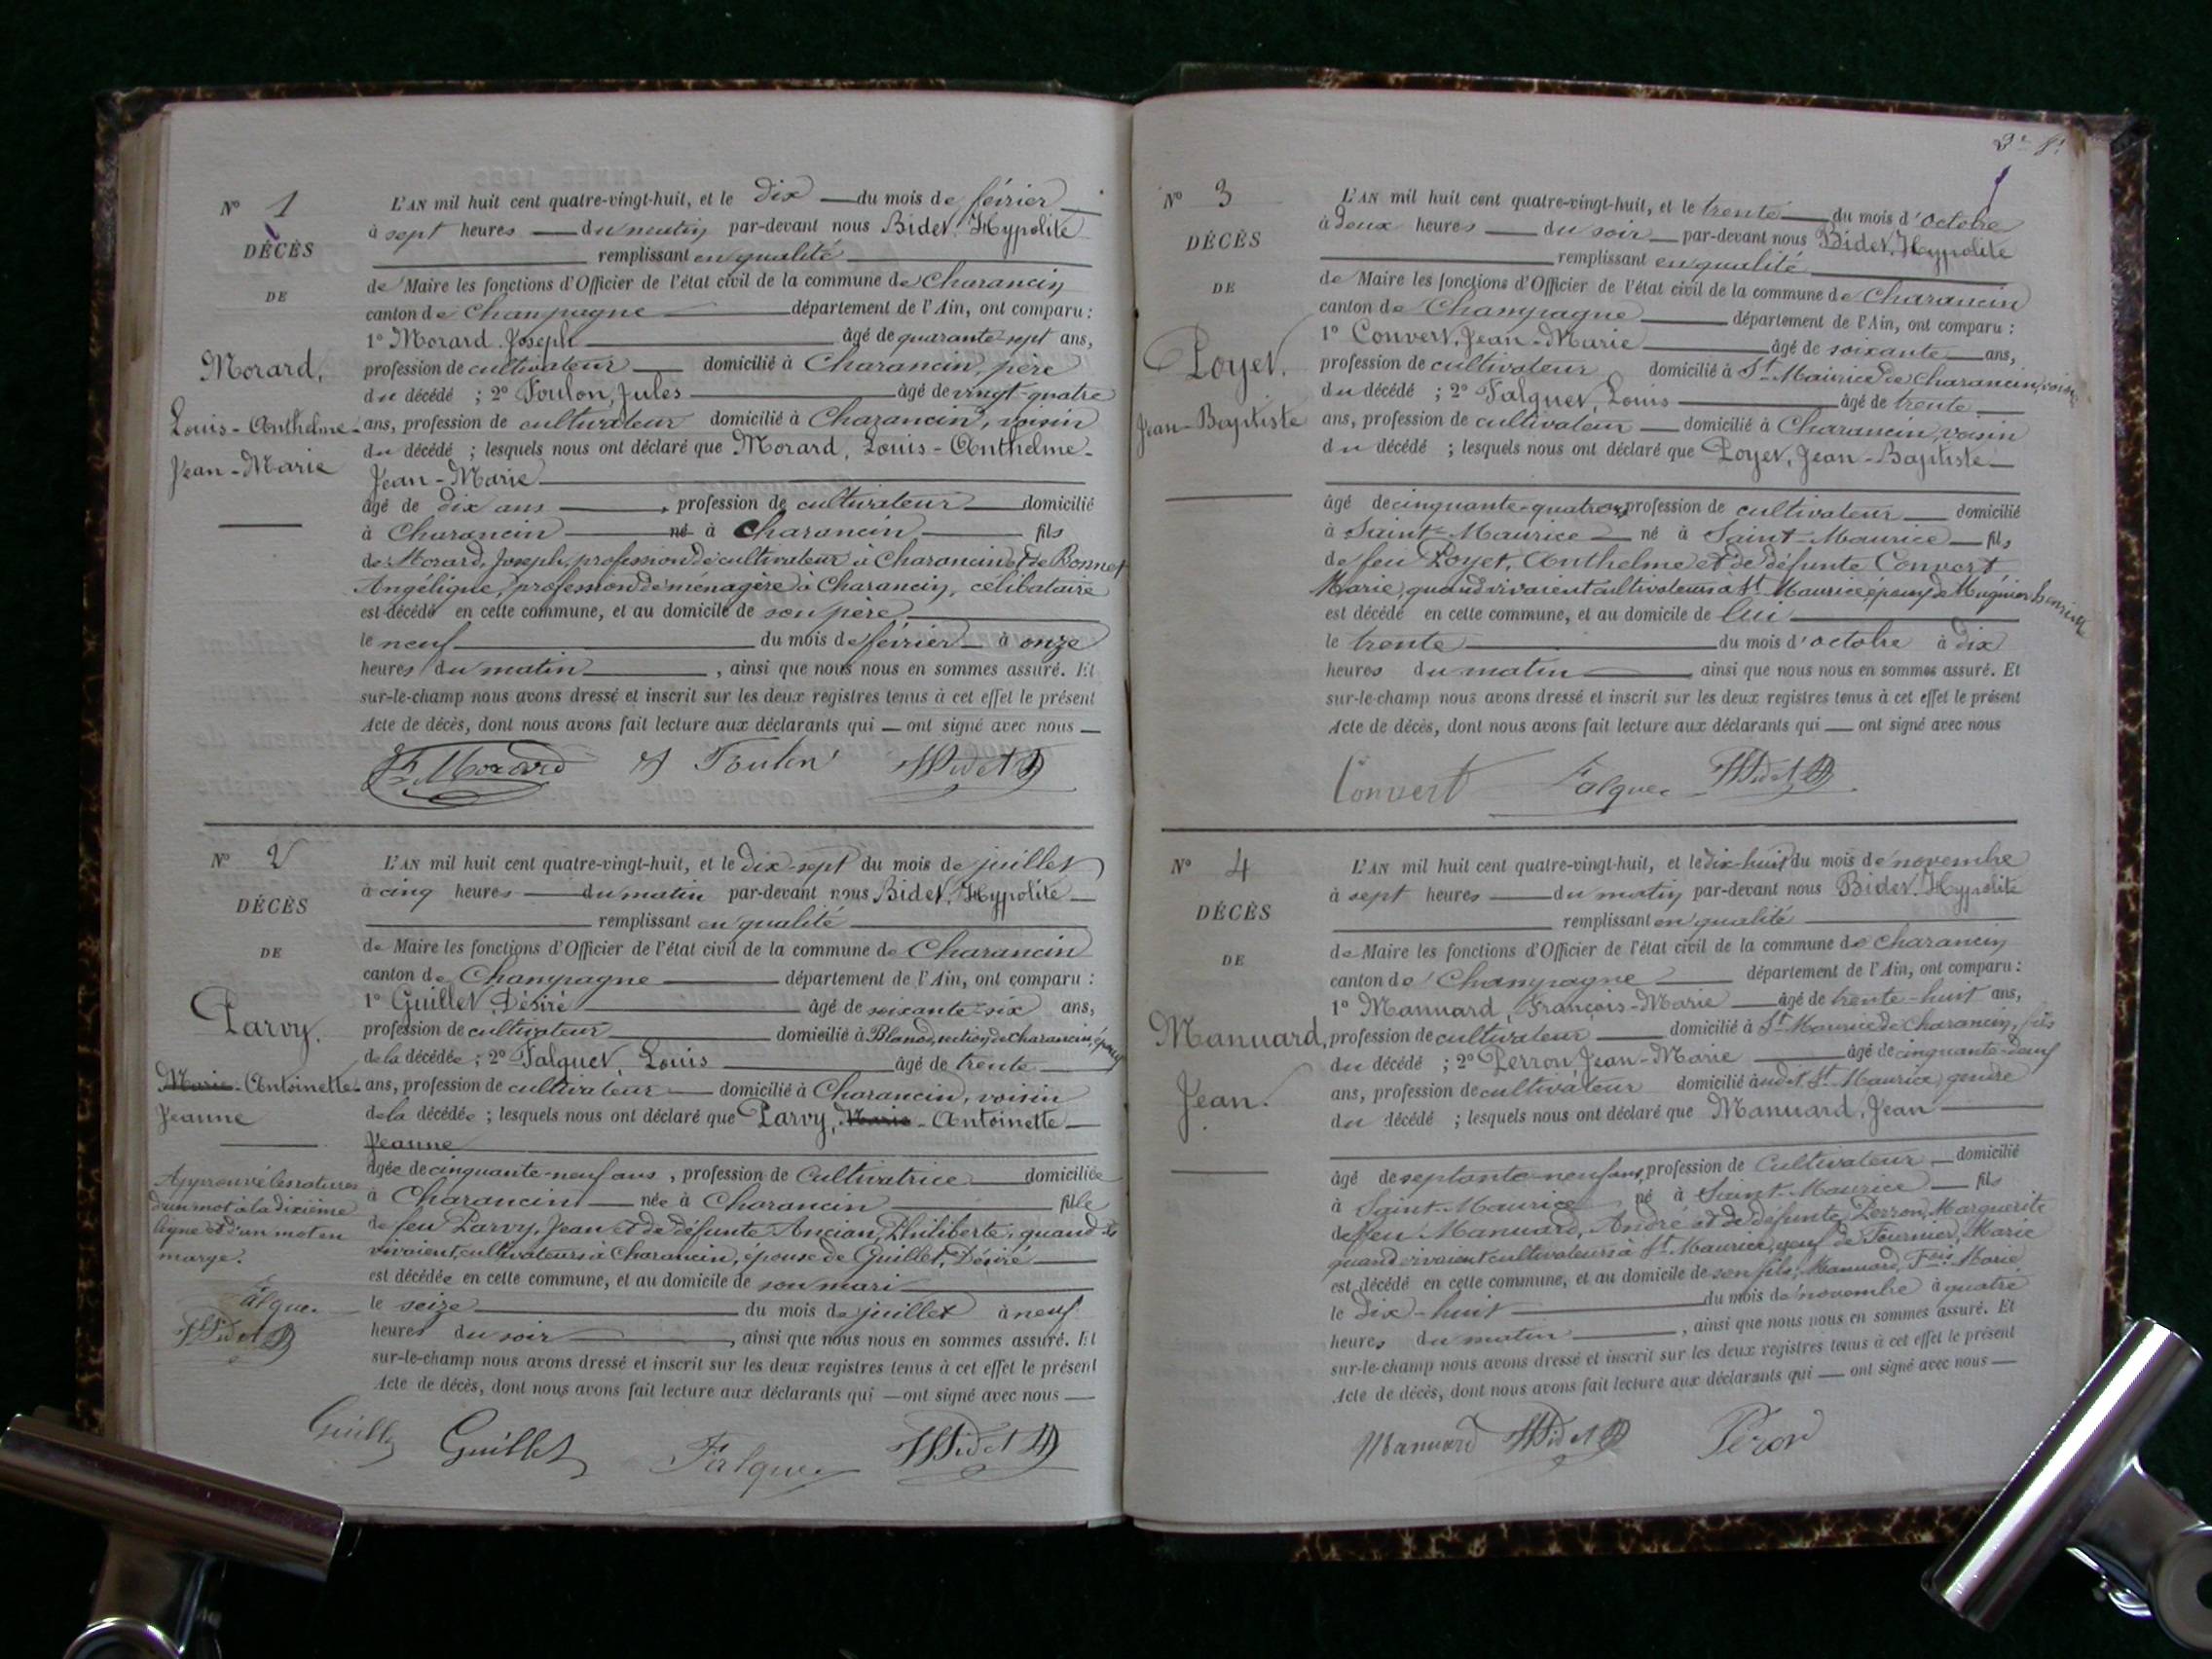 Nº 1
DÉCÈS
DE
Morard,
Louis-Anthelme-
Jean-Marie
L'AN mil huit cent quatre-vingt-huit, et le dix du mois de février
à sept heures du matin par-devant nous Bidet, Hypolite
remplissant en qualité
de Maire les fonctions d'Officier de l'état civil de la commune de Charancin
canton de Champagne département de l'Ain, ont comparu :
1º Morard Joseph âgé de quarante-sept ans,
profession de cultivateur domicilié à Charancin, père
du décédé ; 2º Foulon, Jules âgé de vingt-quatre
ans, profession de cultivateur domicilié à Charancin, voisin
du décédé ; lesquels nous ont déclaré que Morard, Louis-Anthelme-
Jean-Marie
âgé de dix ans, profession de cultivateur domicilié
à Charancin né à Charancin fils
de Morard, Joseph, profession de cultivateur à Charancin et de Bonnet
Angélique, profession de ménagère à Charancin, célibataire
est décédé en cette commune, et au domicile de son père
le neuf du mois de février à onze
heures du matin, ainsi que nous nous en sommes assuré. Et
sur-le-champ nous avons dressé et inscrit sur les deux registres tenus à cet effet le présent
Acte de décès, dont nous avons fait lecture aux déclarants qui ont signé avec nous
Morard Foulon Bidet
Nº 2
DÉCÈS
DE
Parvy.
Marie-Antoinette-
Jeanne
Approuvé les ratures
d'un mot à la dixième
ligne et d'un mot en
marge.
Falque
Bidet
L'AN mil huit cent quatre-vingt-huit, et le dix-sept du mois de juillet
à cinq heures du matin par-devant nous Bidet, Hypolite
remplissant en qualité
de Maire les fonctions d'Officier de l'état civil de la commune de Charancin
canton de Champagne département de l'Ain, ont comparu :
1º Guillet, Désiré âgé de soixante-six ans,
profession de cultivateur domicilié à section de Charancin, époux
de la décédée ; 2º Falquet, Louis âgé de trente
ans, profession de cultivateur domicilié à Charancin, voisin
de la décédée ; lesquels nous ont déclaré que Parvy, Marie-Antoinette
Jeanne
âgée de cinquante-neuf ans, profession de Cultivatrice domiciliée
à Charancin née à Charancin fille
de feu Parvy, Jean et de défunte Ancian, Philiberte, quand ils
vivaient, cultivateurs à Charancin, épouse de Guillet, Désiré
est décédée en cette commune, et au domicile de son mari
le seize du mois de juillet à neuf
heures du soir, ainsi que nous nous en sommes assuré. Et
sur-le-champ nous avons dressé et inscrit sur les deux registres tenus à cet effet le présent
Acte de décès, dont nous avons fait lecture aux déclarants qui ont signé avec nous
Guillet Falque Bidet
Nº 3
DÉCÈS
DE
Poyet.
Jean-Baptiste
L'AN mil huit cent quatre-vingt-huit, et le trente du mois d'octobre
à deux heures du soir par-devant nous Bidet, Hypolite
remplissant en qualité
de Maire les fonctions d'Officier de l'état civil de la commune de Charancin
canton de Champagne département de l'Ain, ont comparu :
1º Convert, Jean-Marie âgé de soixante ans,
profession de cultivateur domicilié à St-Maurice de Charancin, voisin
du décédé ; 2º Falquet, Louis âgé de trente
ans, profession de cultivateur domicilié à Charancin, voisin
du décédé ; lesquels nous ont déclaré que Poyet, Jean-Baptiste
âgé de cinquante-quatre ans, profession de cultivateur domicilié
à Saint-Maurice né à Saint-Maurice fils
de feu Poyet, Anthelme et de défunte Convert
Marie, quand vivaient cultivateurs à St Maurice, époux de Mugnier
est décédé en cette commune, et au domicile de lui
le trente du mois d'octobre à dix
heures du matin ainsi que nous nous en sommes assuré. Et
sur-le-champ nous avons dressé et inscrit sur les deux registres tenus à cet effet le présent
Acte de décès, dont nous avons fait lecture aux déclarants qui ont signé avec nous
Convert Falque Bidet
Nº 4
DÉCÈS
DE
Manuard,
Jean.
L'AN mil huit cent quatre-vingt-huit, et le dix-huit du mois de novembre
à sept heures du matin par-devant nous Bidet, Hypolite
remplissant en qualité
de Maire les fonctions d'Officier de l'état civil de la commune de Charancin
canton de Champagne département de l'Ain, ont comparu :
1º Manuard, François-Marie âgé de trente-huit ans,
profession de cultivateur domicilié à St-Maurice de Charancin, fils
du décédé ; 2º Perron, Jean-Marie âgé de cinquante-deux
ans, profession de cultivateur domicilié audit St-Maurice, gendre
du décédé ; lesquels nous ont déclaré que Manuard, Jean
âgé de septante-neuf ans, profession de Cultivateur domicilié
à Saint-Maurice né à Saint-Maurice fils
de feu Manuard, André et de défunte Perron, Marguerite
quand vivaient cultivateurs à St-Maurice, veuf de Fournier, Marie
est décédé en cette commune, et au domicile de son fils, Manuard, Fçois Marie
le dix-huit du mois de novembre à quatre
heures du matin, ainsi que nous nous en sommes assuré. Et
sur-le-champ nous avons dressé et inscrit sur les deux registres tenus à cet effet le présent
Acte de décès, dont nous avons fait lecture aux déclarants qui ont signé avec nous
Manuard Bidet Péron